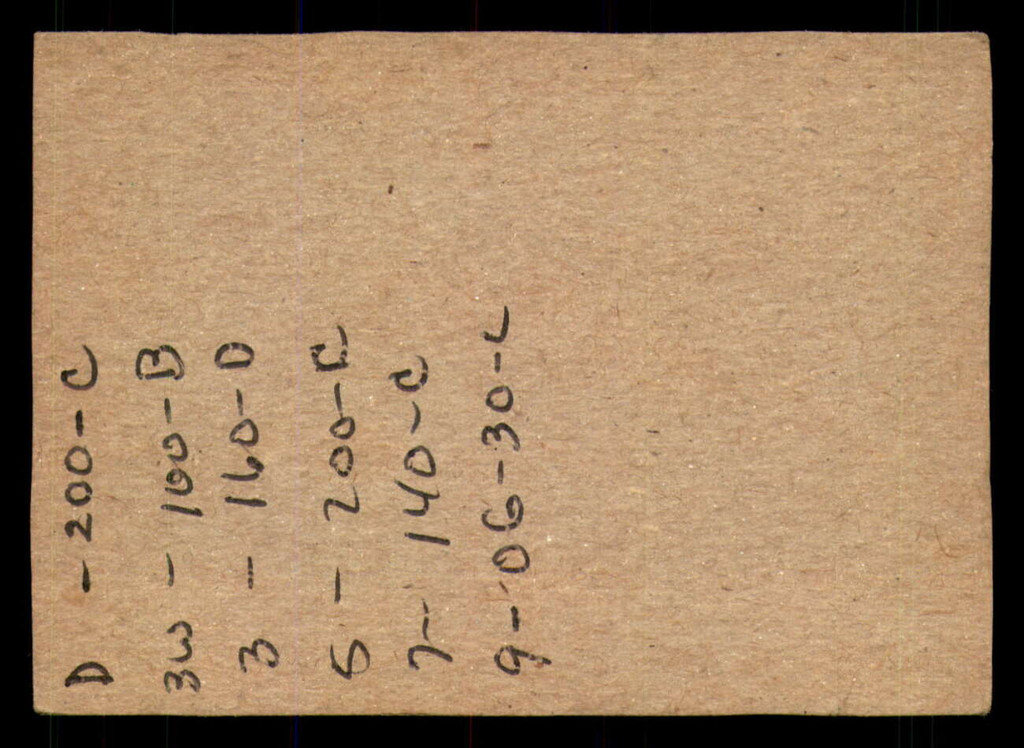 D - 200 - C
3W - 100 - B
3 - 160 - D
5 - 200 - C
7 - 140 - C
9 - 0G - 30 - L